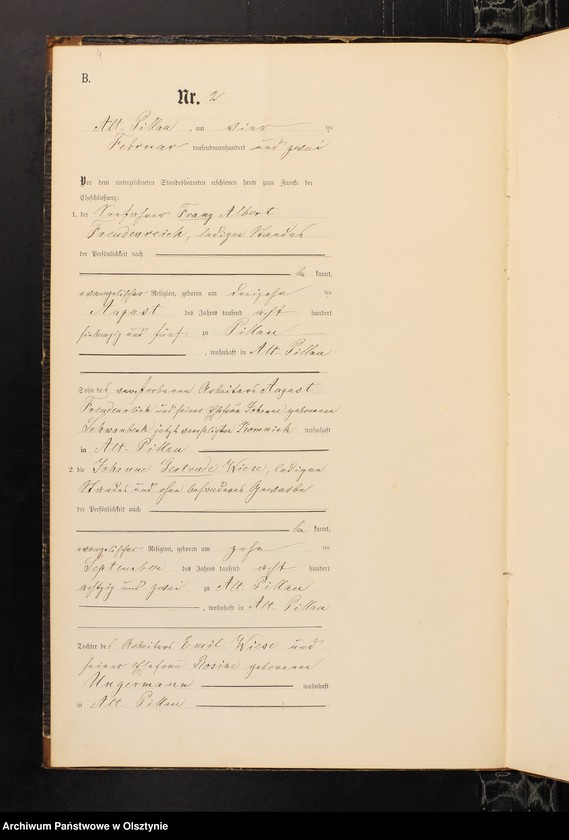 4
B.
Nr. 2
Alt Pillau, am vier ten
Februar tausendneunhundert und zwei
Vor dem unterzeichneten Standesbeamten erschienen heute zum Zwecke der
Eheschließung:
1. der Seefahrer Franz Albert
Freudenreich, ledigen Standes
der Persönlichkeit nach
be kannt,
evangelischer Religion, geboren am dreizehn ten
August des Jahres tausend acht hundert
siebenzig und fünf zu Pillau
, wohnhaft in Alt Pillau
Sohn des verstorbenen Arbeiters August
Freudenreich und seiner Ehefrau Johanne geborenen
Schwanbeck jetzt verehelichten wohnhaft
in Alt Pillau
2. die Johanne Gertrude Wiese, ledigen
Standes und ohne besonderes Gewerbe
der Persönlichkeit nach
be kannt,
evangelischer Religion, geboren am zehn ten
September des Jahres tausend acht hundert
achtzig und zwei zu Alt Pillau
, wohnhaft in Alt Pillau
Tochter des Arbeiters Emil Wiese und
seiner Ehefrau Rosine geborenen
Ungermann wohnhaft
in Alt Pillau
Archiwum Państwowe w Olsztynie